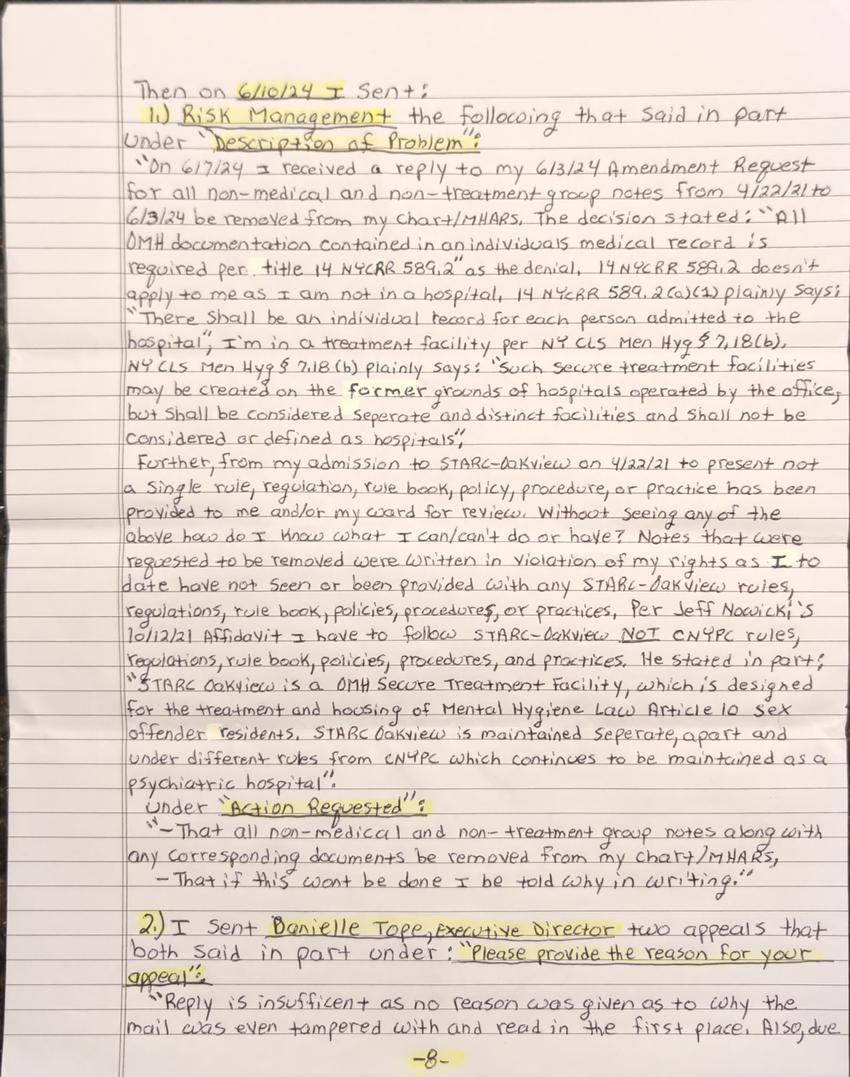 Then on 6/10/24 I sent:
1.) Risk Management the following that said in part
under "Description of Problem":
"On 6/7/24 I received a reply to my 6/3/24 Amendment Request
for all non-medical and non-treatment group notes from 4/22/21 to
6/3/24 be removed from my chart/MHARS. The decision stated: "All
OMH documentation contained in an individuals medical record is
required per title 14 NYCRR 589.2" as the denial. 14 NYCRR 589.2 doesn't
apply to me as I am not in a hospital. 14 NYCRR 589.2(a)(1) plainly says:
"There shall be an individual record for each person admitted to the
hospital", I'm in a treatment facility per NY CLS Men Hyg § 7.18(b).
NY CLS Men Hyg § 7.18(b) plainly says: "Such secure treatment facilities
may be created on the former grounds of hospitals operated by the office,
but shall be considered seperate and distinct facilities and shall not be
considered or defined as hospitals",
Further, from my admission to STARC-Oakview on 4/22/21 to present not
a single rule, regulation, rule book, policy, procedure, or practice has been
provided to me and/or my ward for review. Without seeing any of the
above how do I know what I can/can't do or have? Notes that were
requested to be removed were written in violation of my rights as I to
date have not seen or been provided with any STARC-Oakview rules,
regulations, rule book, policies, procedures, or practices. Per Jeff Nowicki's
10/12/21 Affidavit I have to follow STARC-Oakview NOT CNYPC rules,
regulations, rule book, policies, procedures, and practices. He stated in part:
"STARC Oakview is a OMH Secure Treatment Facility, which is designed
for the treatment and housing of Mental Hygiene Law Article 10 sex
offender residents. STARC Oakview is maintained seperate, apart and
under different rules from CNYPC which continues to be maintained as a
psychiatric hospital".
Under "Action Requested":
"-That all non-medical and non-treatment group notes along with
any corresponding documents be removed from my chart/MHARS,
-That if this wont be done I be told why in writing."
2.) I sent Danielle Tope, Executive Director two appeals that
both said in part under: "Please provide the reason for your
appeal":
"Reply is insufficent as no reason was given as to why the
mail was even tampered with and read in the first place. Also, due
-8-